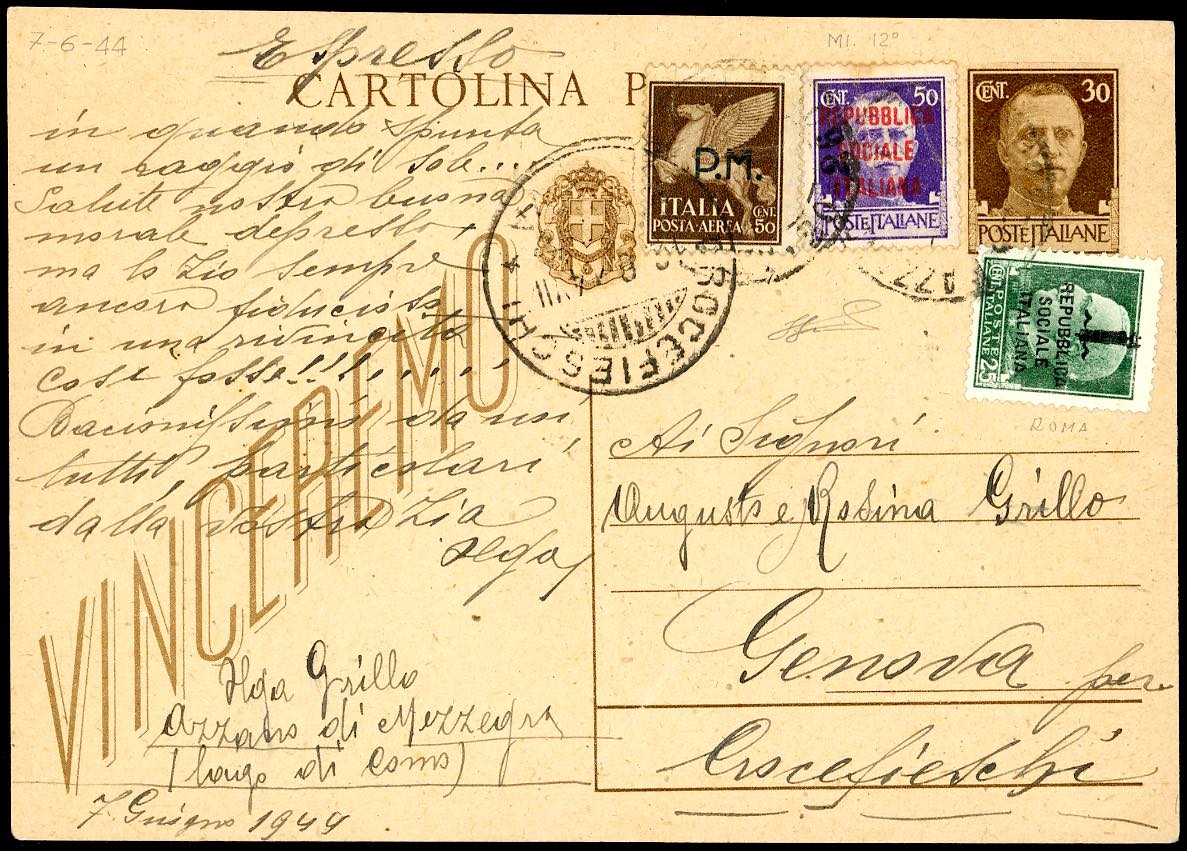 7-6-44
MI. 12°
Espresso
CARTOLINA P
in quando spunta
un raggio di sole...
Salute nostra buona
morale depresso,
ma lo Zio sempre
ancora fiducioso
in una rivincita
così fosse!!!.....
Bacionissimi da noi
tutti, particolari
dalla vostra Zia
Ilga
VINCEREMO
Ilga Grillo
Azzano di Mezzegra
(lago di Como)
7 Giugno 1944
P.M.
ITALIA
POSTA AEREA
CENT. 50
CENT. 50
REPUBBLICA
SOCIALE
ITALIANA
POSTE ITALIANE
CENT. 30
POSTE ITALIANE
CROCEFIESCHI
REPUBBLICA
SOCIALE
ITALIANA
POSTE
ITALIANE 25
CENT.
ROMA
Ai Signori
Augusto e Rosina Grillo
Genova per
Crocefieschi